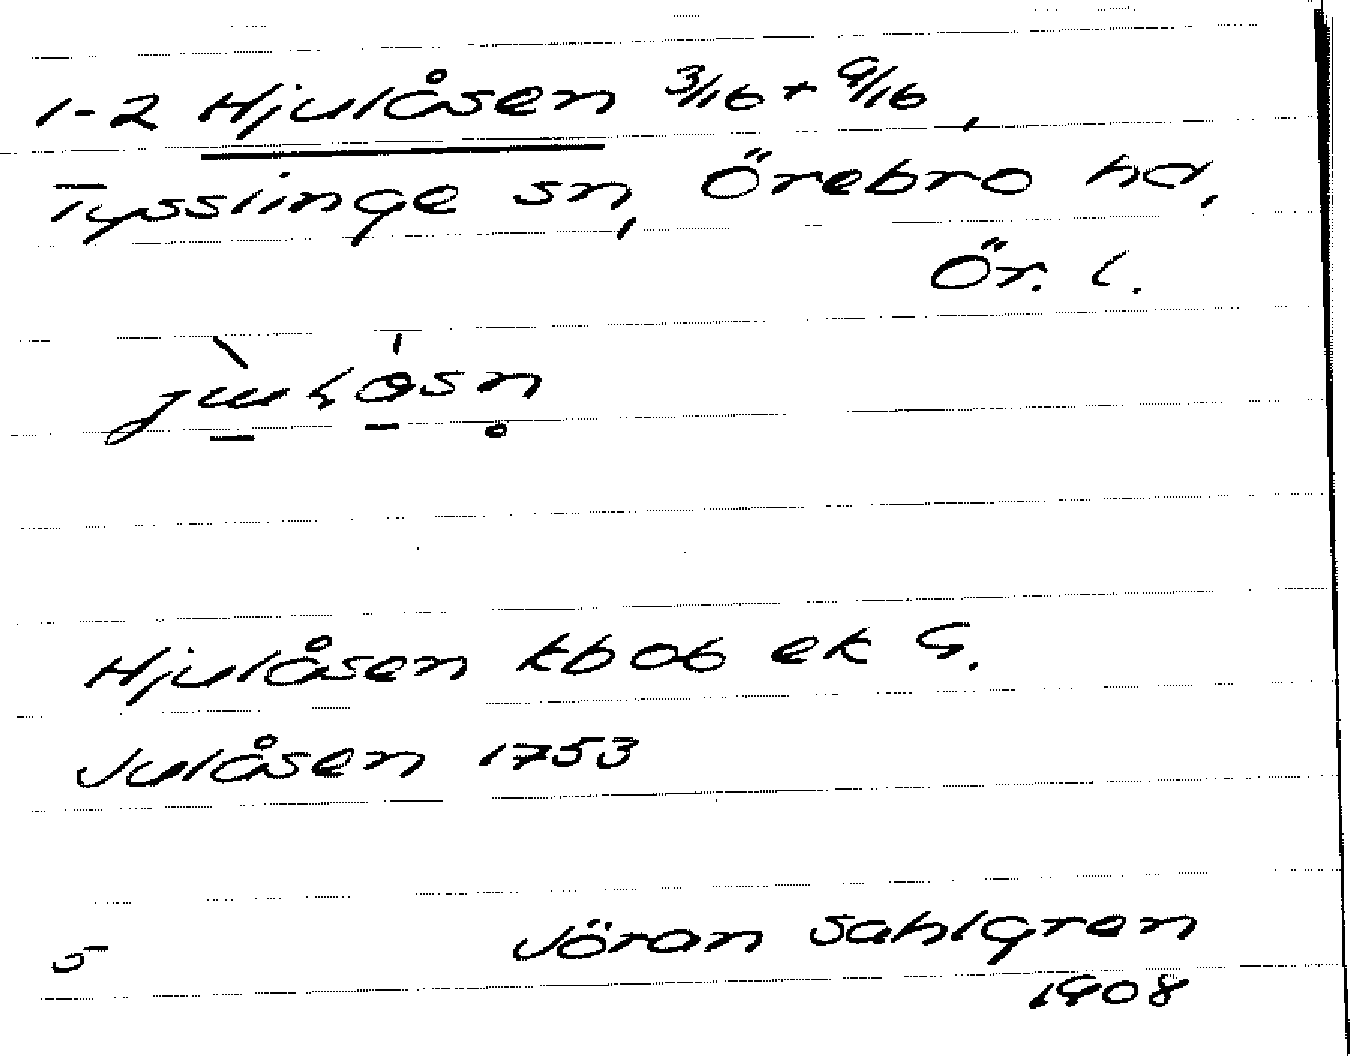 1-2 Hjulåsen 3/16 + 9/16,
Tysslinge sn, Örebro hd,
Ör. l.
Hjulåsen kb 06 ek G.
Julåsen 1753
5 Jöran Sahlgren
1908